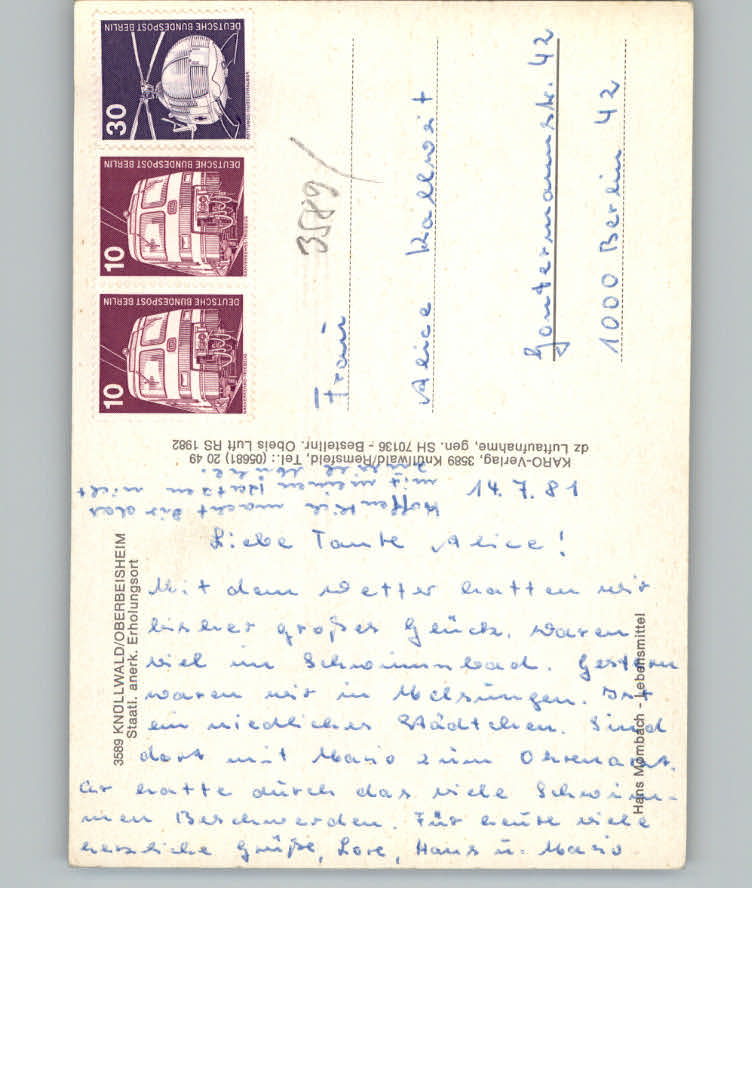 DEUTSCHE BUNDESPOST BERLIN
30
DEUTSCHE BUNDESPOST BERLIN
10
DEUTSCHE BUNDESPOST BERLIN
10
3589/
Frau
Alice Kallweit
Gontermannstr. 42
1000 Berlin 42
KARO-Verlag, 3589 Knüllwald/Remsfeld, Tel.: (05681) 20 49
dz Luftaufnahme, gen. SH 70136 - Bestellnr. Obeis Luft RS 1982
3589 KNÜLLWALD/OBERBEISHEIM
Staatl. anerk. Erholungsort
Hans Mombach - Lebensmittel
14.7.81
Liebe Tante Alice!
Mit dem Wetter hatten wir
bisher großes Glück, waren
viel im Schwimmbad. Gestern
waren wir in Melsungen. Ist
ein niedliches Städtchen. Sind
dort mit Mario zum Ohrenarzt.
Er hatte durch das viele Schwim-
men Beschwerden. Für heute viele
herzliche Grüße, Lore, Hans u. Mario
Hoffentlich macht dir das
mit meinen Katzen nicht
zuviel Mühe.